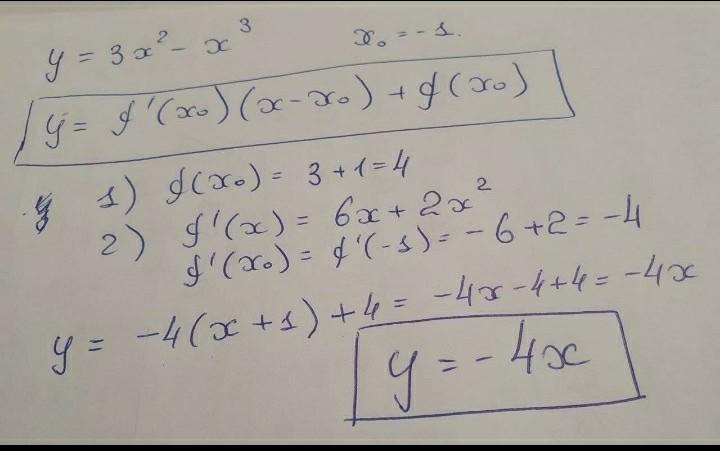 y = 3x² - x³ x₀ = -1.
y = f'(x₀)(x-x₀) + f(x₀)
1) f(x₀) = 3 + 1 = 4
2) f'(x) = 6x + 2x²
f'(x₀) = f'(-1) = -6 + 2 = -4
y = -4(x + 1) + 4 = -4x - 4 + 4 = -4x
y = -4x